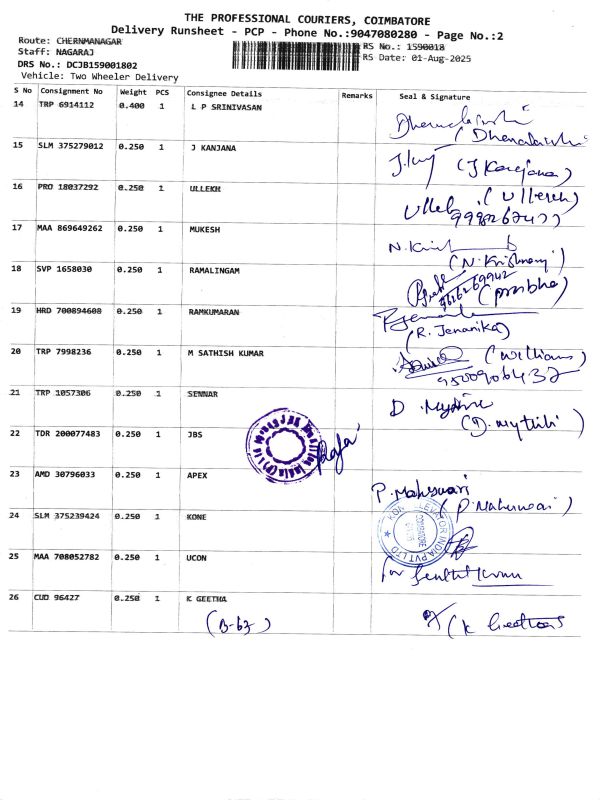 THE PROFESSIONAL COURIERS, COIMBATORE
Delivery Runsheet - PCP - Phone No.:9047080280 - Page No.:2
Route: CHERNMANAGAR
RS No.: 1590018
Staff: NAGARAJ
RS Date: 01-Aug-2025
DRS No.: DCJB159001802
Vehicle: Two Wheeler Delivery
S No Consignment No Weight PCS Consignee Details Remarks Seal & Signature
14 TRP 6914112 0.400 1 L P SRINIVASAN
15 SLM 375279012 0.250 1 J KANJANA
16 PRO 18037292 0.250 1 ULLEKH
17 MAA 869649262 0.250 1 MUKESH
(N. Krishnanj)
18 SVP 1658030 0.250 1 RAMALINGAM
9626269942
(prabha)
19 HRD 700894608 0.250 1 RAMKUMARAN
(R. Jenanika)
20 TRP 7998236 0.250 1 M SATHISH KUMAR (Williams)
9500906432
21 TRP 1057306 0.250 1 SENNAR
(D. mythili)
22 TDR 200077483 0.250 1 JBS
23 AMD 30796033 0.250 1 APEX
P. Maheswari
24 SLM 375239424 0.250 1 KONE
25 MAA 708052782 0.250 1 UCON
for Senthil Kumar
26 CUD 96427 0.250 1 K GEETHA
(B-63)